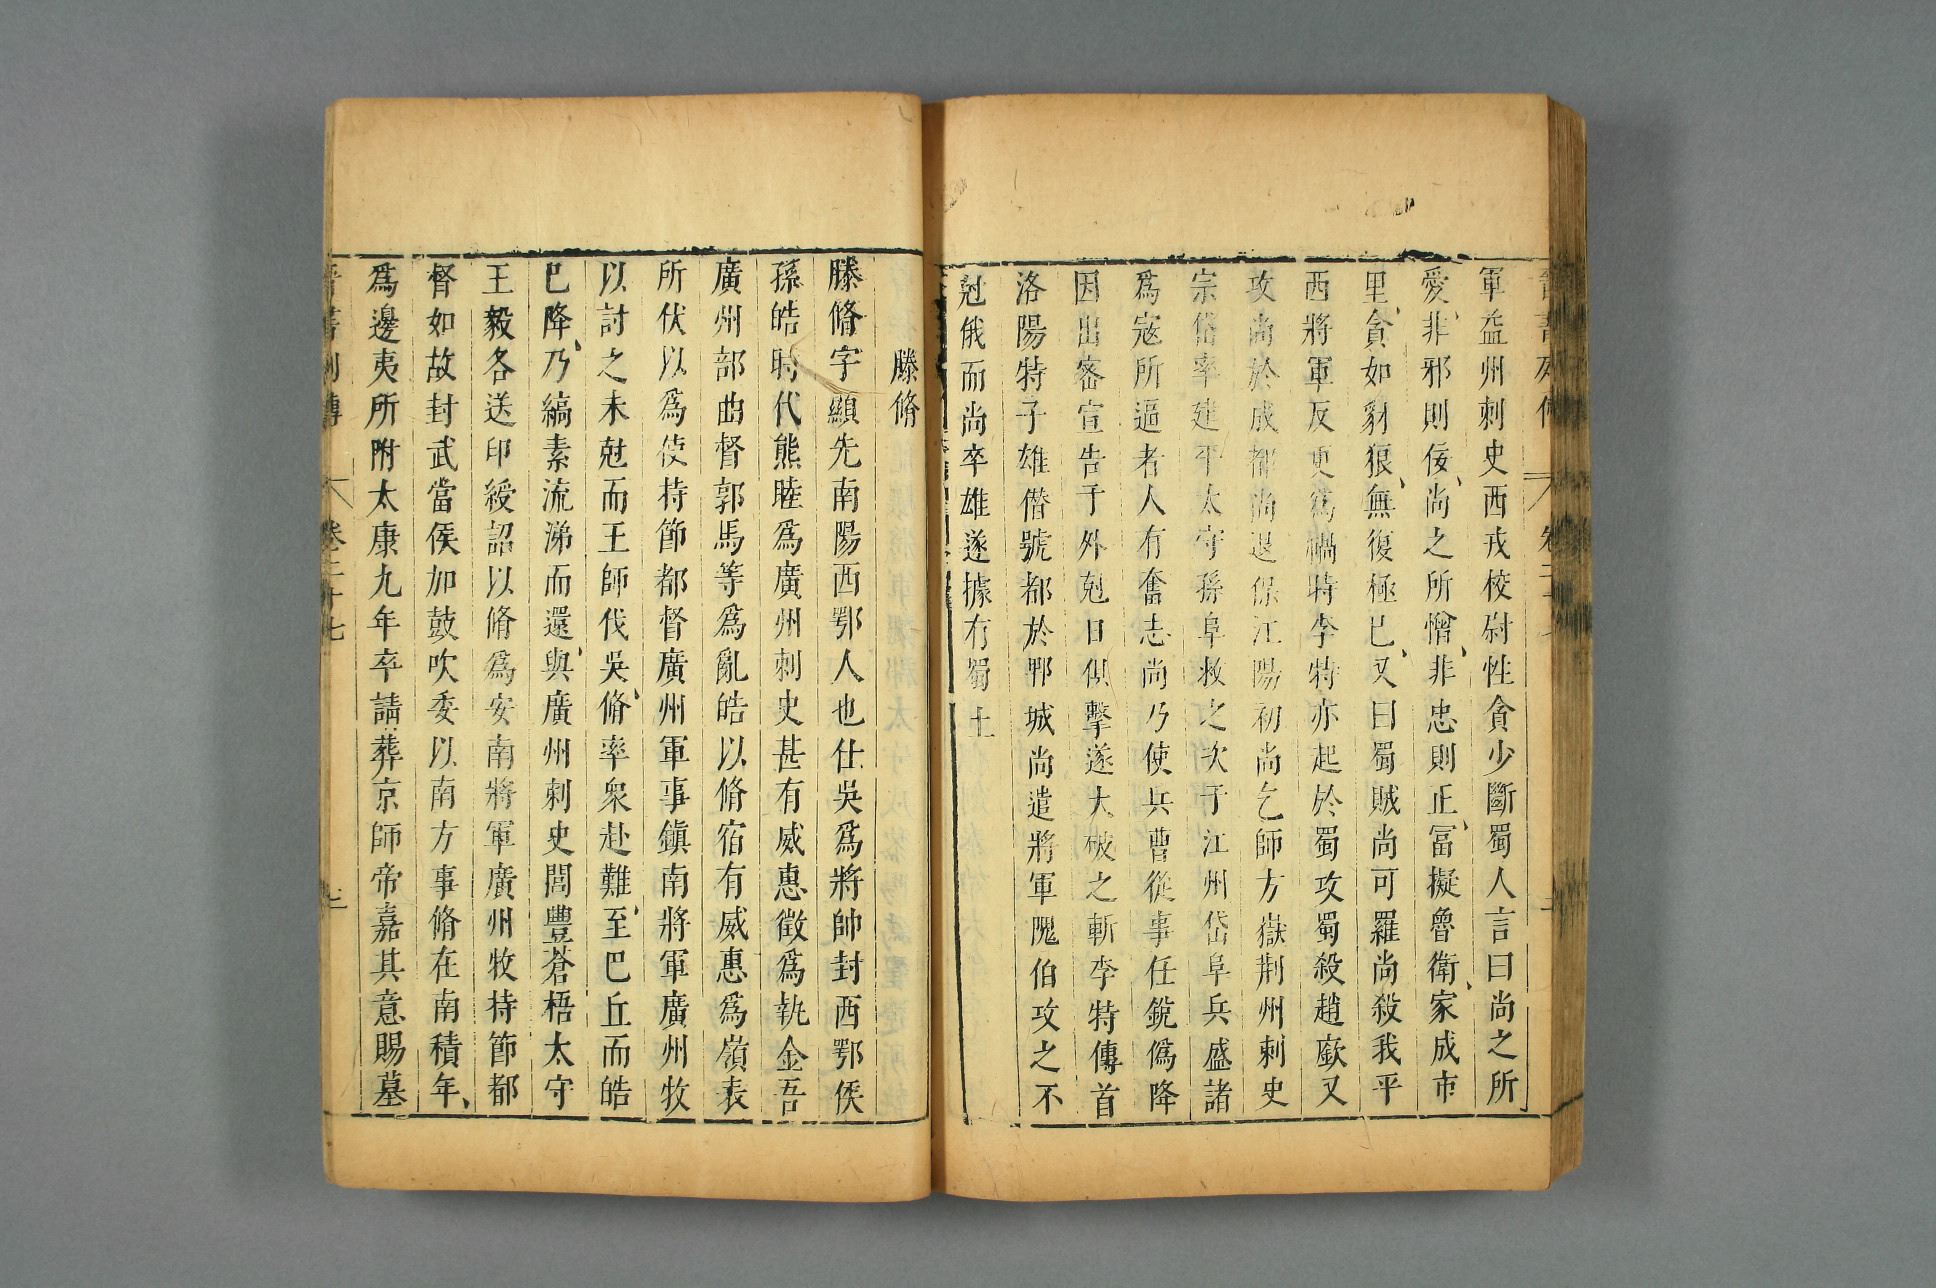 軍益州刺史西戎校尉性貪少斷蜀人言曰尚之所
愛、非邪則佞、尚之所憎、非忠則正、冨擬魯衛、家成市
里、貪如豺狼、無復極已、又曰蜀賊尚可羅尚殺我平
西將軍反更爲禍時李特亦起於蜀攻蜀殺趙廞又
攻尚於成都尚退保江陽初尚乞師方嶽荆州刺史
宗岱率建平太守孫阜救之次于江州岱阜兵盛諸
爲寇所逼者人有奮志尚乃使兵曹從事任銳僞降
因出密宣告于外尅日俱擊遂大破之斬李特傳首
洛陽特子雄僭號都於郫城尚遣將軍隗伯攻之不
尅俄而尚卒雄遂據有蜀土
滕脩
滕脩字顯先南陽西鄂人也仕吳爲將帥封西鄂侯
孫皓時代熊睦爲廣州刺史甚有威惠徵爲執金吾
廣州部曲督郭馬等爲亂皓以脩宿有威惠爲嶺表
所伏以爲使持節都督廣州軍事鎮南將軍廣州牧
以討之未尅而王師伐吳、脩率衆赴難、至巴丘而皓
已降、乃縞素流涕而還、與廣州刺史閭豐蒼梧太守
王毅各送印綬詔以脩爲安南將軍廣州牧持節都
督如故封武當侯加鼓吹委以南方事脩在南積年、
爲邊夷所附太康九年卒請葬京師帝嘉其意賜墓
晉書列傳 卷二十七